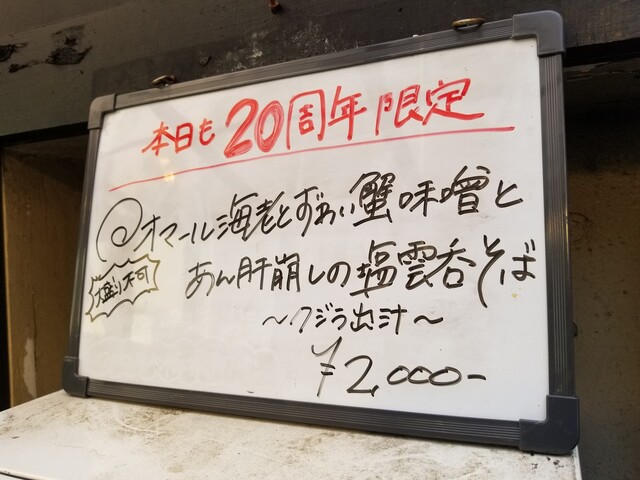 本日も20周年限定
オマール海老とずわい蟹味噌と
あん肝崩しの塩雲呑そば
大盛り不可
〜クジラ出汁〜
¥2,000-